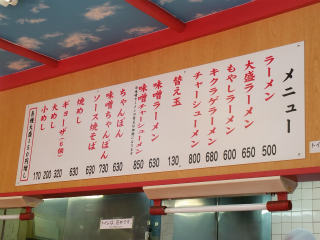 メニュー
ラーメン 500
大盛ラーメン 650
もやしラーメン 600
キクラゲラーメン 680
チャーシューメン 800
替え玉 130
味噌ラーメン 630
味噌チャーシューメン 850
ちゃんぽん 630
味噌ちゃんぽん 730
ソース焼そば 630
焼めし
ギョーザ(6個) 320
大めし 200
小めし 170